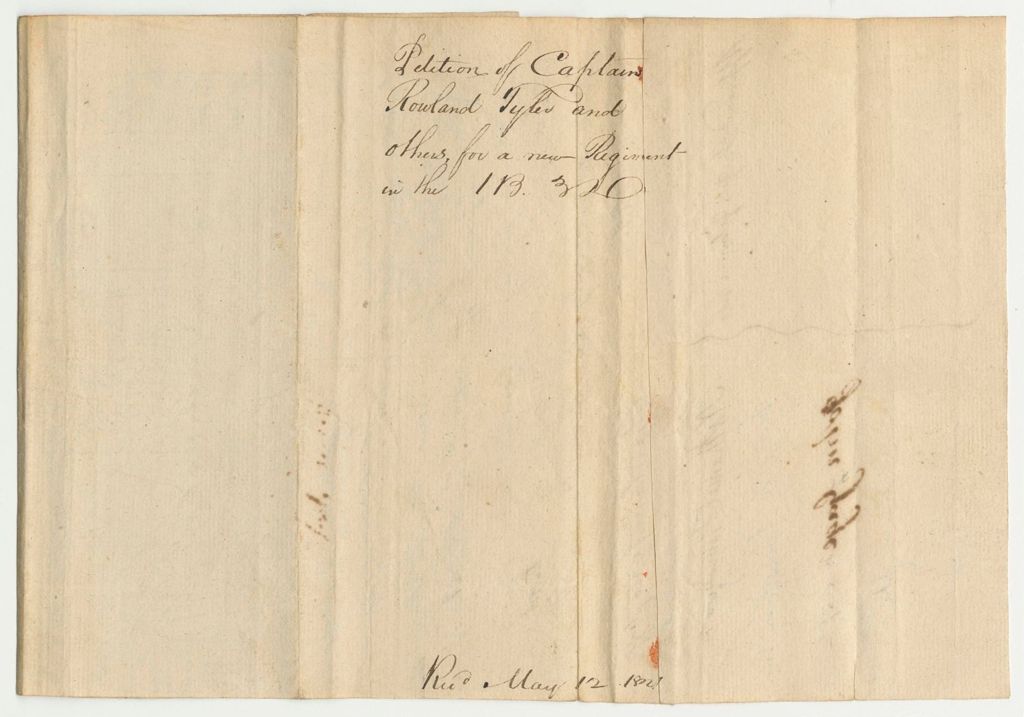 Petition of Captain
Rowland Tyler and
others, for a new Regiment
in the 1 B. 3 D
Recd May 12 1821